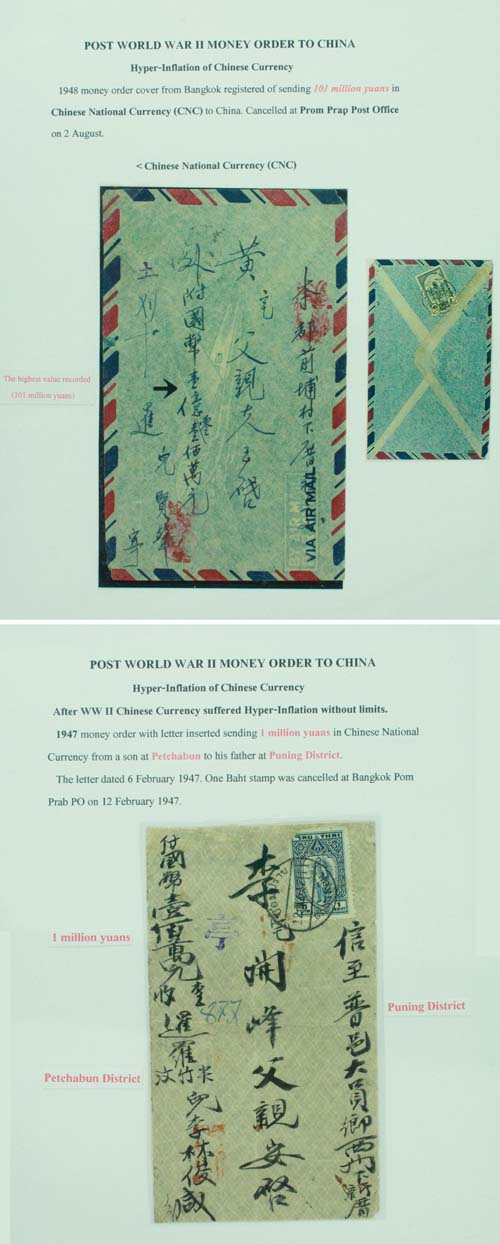 POST WORLD WAR II MONEY ORDER TO CHINA
Hyper-Inflation of Chinese Currency
1948 money order cover from Bangkok registered of sending 101 million yuans in
Chinese National Currency (CNC) to China. Cancelled at Prom Prap Post Office
on 2 August.
< Chinese National Currency (CNC)
The highest value recorded
(101 million yuans)
東都前埔村下厝
黃
父親大人啓
外附國幣壹億壹佰萬元
暹
VIA AIR MAIL
BY AIR MAIL
POST WORLD WAR II MONEY ORDER TO CHINA
Hyper-Inflation of Chinese Currency
After WW II Chinese Currency suffered Hyper-Inflation without limits.
1947 money order with letter inserted sending 1 million yuans in Chinese National
Currency from a son at Petchabun to his father at Puning District.
The letter dated 6 February 1947. One Baht stamp was cancelled at Bangkok Pom
Prab PO on 12 February 1947.
1 million yuans
Petchabun District
Puning District
THAI
信至普邑大員鄉西門下厝
李
開峰父親安啓
付國幣壹佰萬元收
877
暹羅
竹
兒李林俊緘